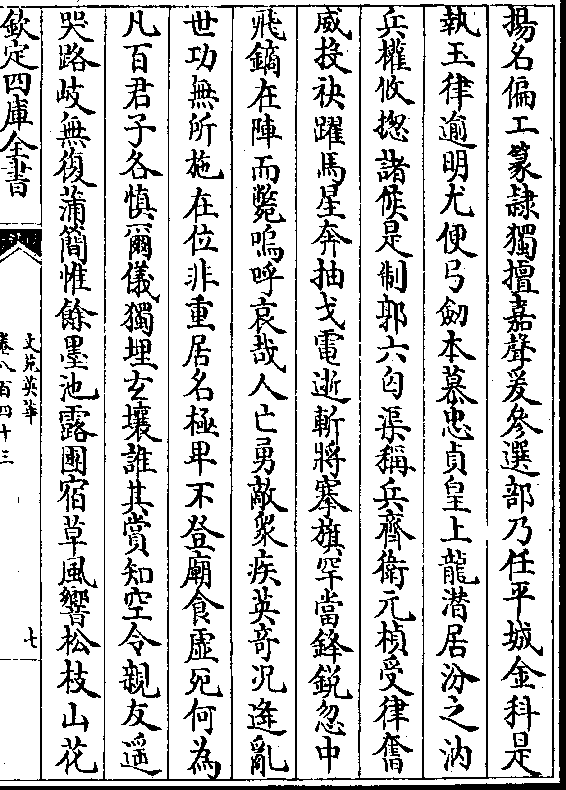 揚名偏工篆隷獨擅嘉聲爰參選部乃任平城金科是
執玉律逾明尤便弓劒本慕忠貞皇上龍潛居汾之汭
兵權攸揔諸侯是制郭六匈渠稱兵齊衛元楨受律奮
威投袂躍馬星奔抽戈電逝斬將搴旗罕當鋒鋭忽中
飛鏑在陣而斃嗚呼哀哉人亡勇敵衆疾英奇况逢亂
世功無所施在位非重居名極卑不登廟食虛死何為
凡百君子各慎爾儀獨埋玄壤誰其賞知空令親友遥
哭路岐無復蒲簡惟餘墨池露團宿草風響松枝山花
欽定四庫全書
文苑英華
卷八百四十三
七